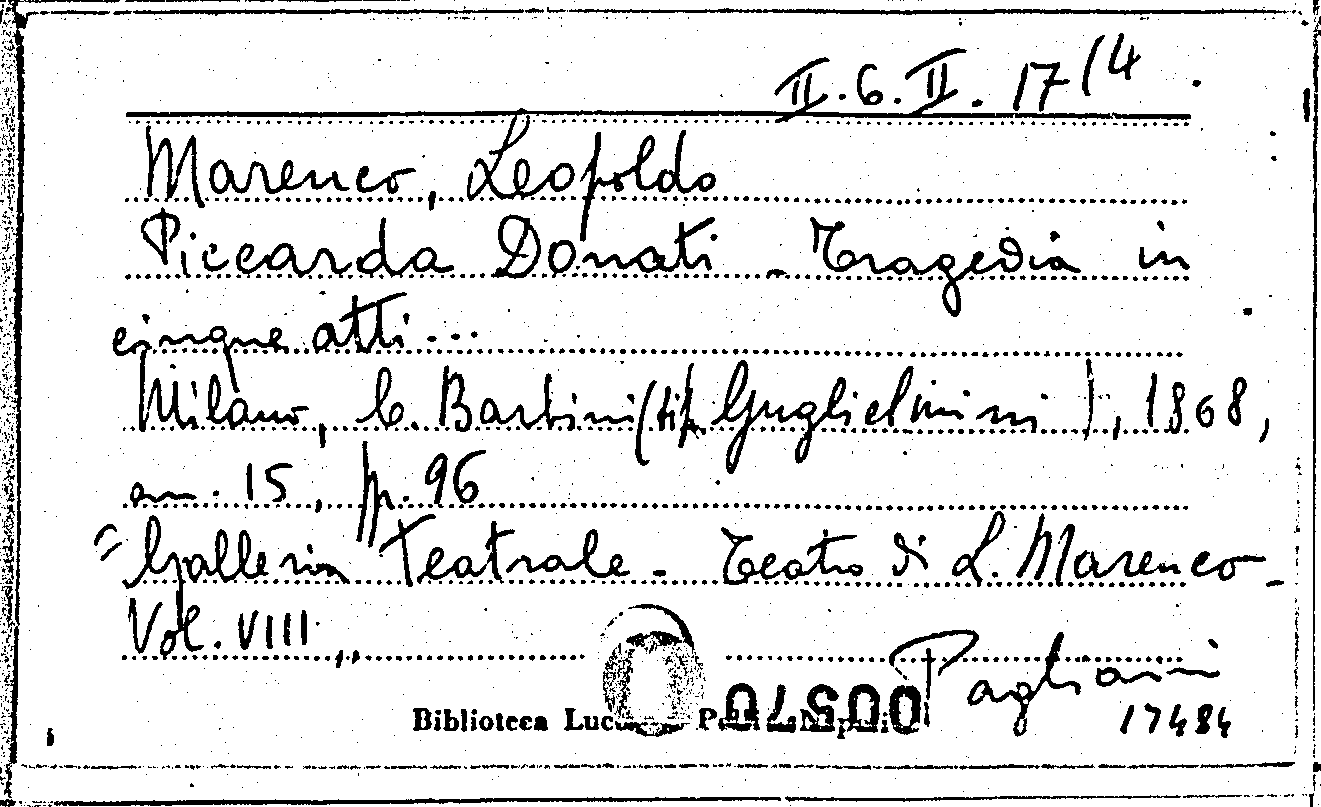 II.6.II.17/4.
Marenco, Leopoldo
Piccarda Donati - Tragedia in
cinque atti...
Milano, C. Barbini (tip. Guglielmini), 1868,
cm. 15, pp. 96
"Galleria Teatrale - Teatro di L. Marenco -
Vol. VIII"
Pagliaini
17484
Biblioteca Napoli